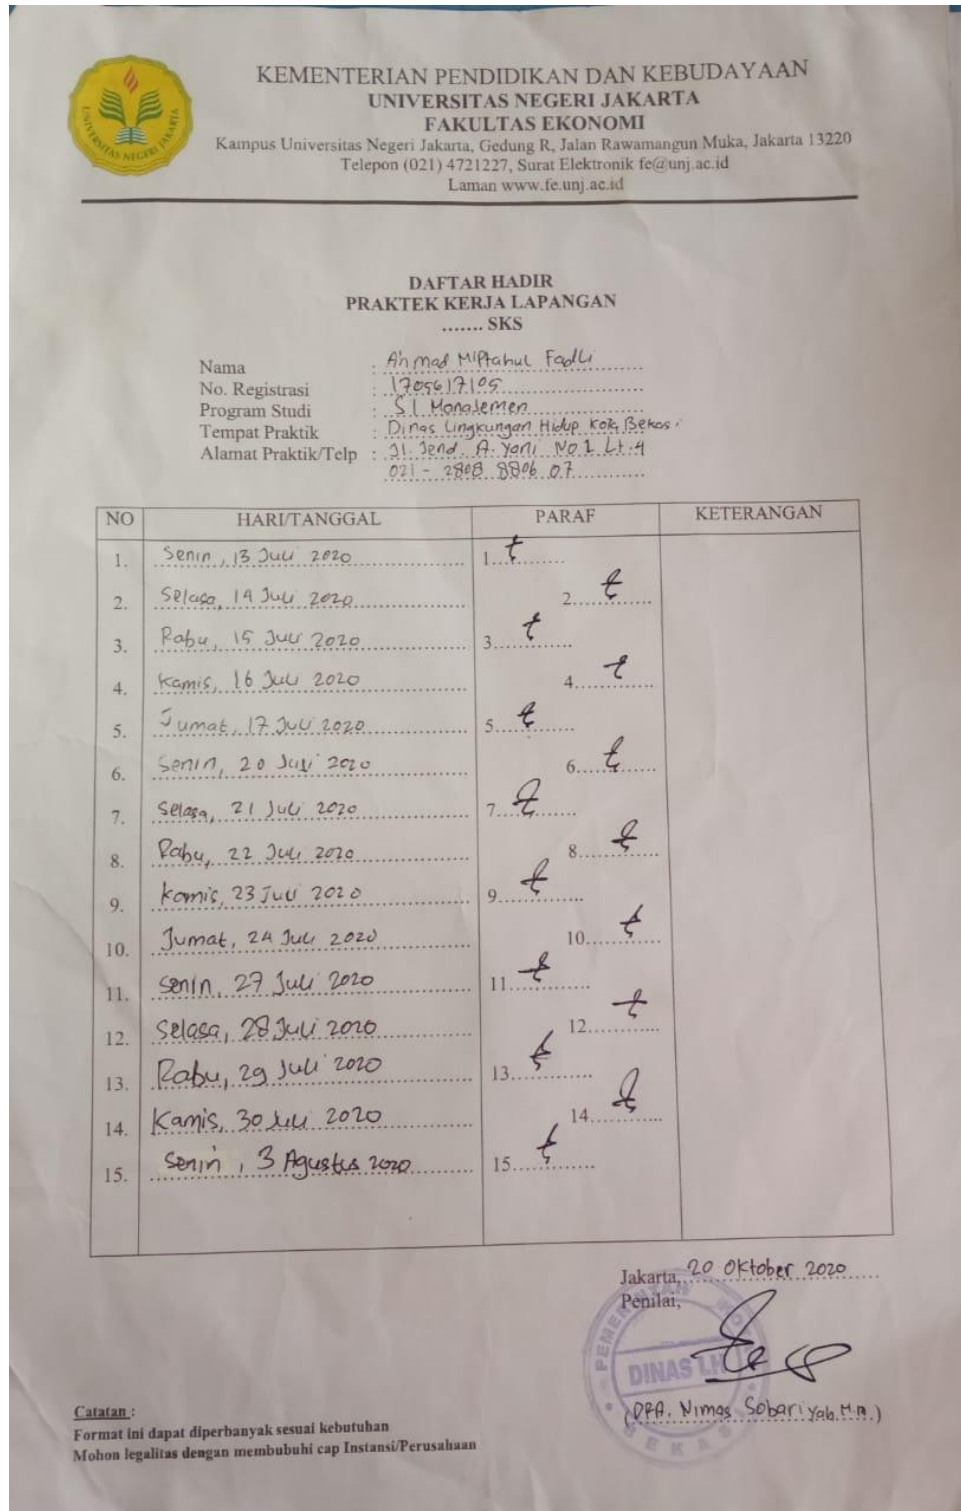 KEMENTERIAN PENDIDIKAN DAN KEBUDAYAAN
UNIVERSITAS NEGERI JAKARTA
FAKULTAS EKONOMI
Kampus Universitas Negeri Jakarta, Gedung R, Jalan Rawamangun Muka, Jakarta 13220
Telepon (021) 4721227, Surat Elektronik fe@unj.ac.id
Laman www.fe.unj.ac.id
UNIVERSITAS NEGERI JAKARTA
DAFTAR HADIR
PRAKTEK KERJA LAPANGAN
....... SKS
Nama : Ahmad Miftahul Fadli
No. Registrasi : 1705617105
Program Studi : S1 Manajemen
Tempat Praktik : Dinas Lingkungan Hidup Kota Bekasi
Alamat Praktik/Telp : Jl. Jend. A. Yani No.1 Lt.4
021 - 2808 8806 07
NO HARI/TANGGAL PARAF KETERANGAN
1. Senin, 13 Juli 2020 1.
2. Selasa, 14 Juli 2020 2.
3. Rabu, 15 Juli 2020 3.
4. Kamis, 16 Juli 2020 4.
5. Jumat, 17 Juli 2020 5.
6. Senin, 20 Juli 2020 6.
7. Selasa, 21 Juli 2020 7.
8. Rabu, 22 Juli 2020 8.
9. Kamis, 23 Juli 2020 9.
10. Jumat, 24 Juli 2020 10.
11. Senin, 27 Juli 2020 11.
12. Selasa, 28 Juli 2020 12.
13. Rabu, 29 Juli 2020 13.
14. Kamis, 30 Juli 2020 14.
15. Senin, 3 Agustus 2020 15.
Jakarta, 20 Oktober 2020
Penilai,
PEMERINTAH
DINAS LH
BEKASI
(DRA. Nimas Sobariyah. M.A.)
Catatan :
Format ini dapat diperbanyak sesuai kebutuhan
Mohon legalitas dengan membubuhi cap Instansi/Perusahaan